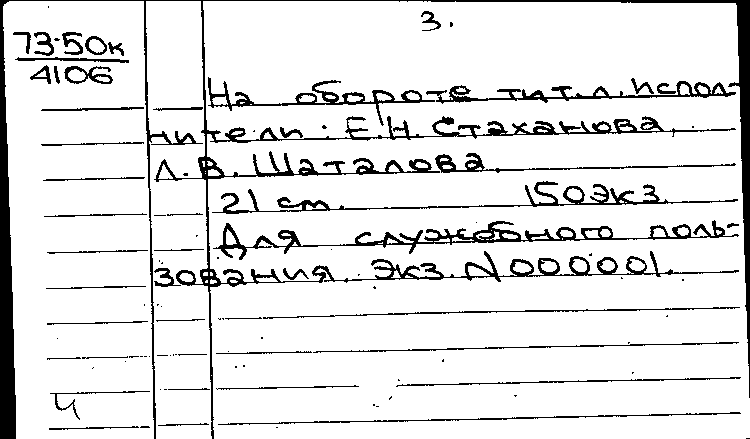 3.
73-50к
4106
На обороте тит.л. испол-
нители: Е.Н. Стаханова,
Л.В. Шаталова.
21 см. 150экз.
Для служебного поль-
зования. Экз. N 000001.
4